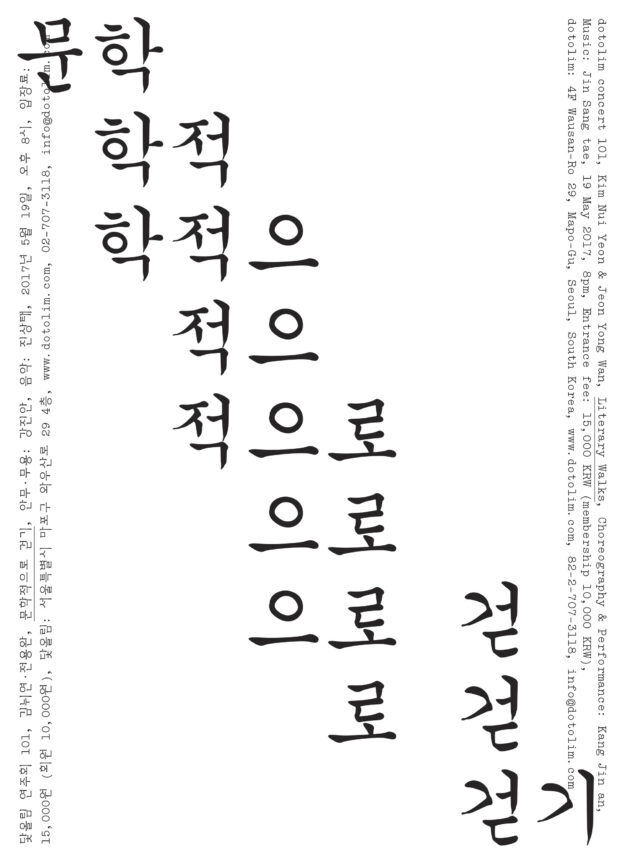 문학
학적
학적으
적으
적으로
으로
으로 걷
로 걷
걷기
닻올림 연주회 101, 김뉘연·전용완, 문학적으로 걷기, 안무·무용: 강진안, 음악: 진상태, 2017년 5월 19일, 오후 8시, 입장료:
15,000원 (회원 10,000원), 닻올림: 서울특별시 마포구 와우산로 29 4층, www.dotolim.com, 02-707-3118, info@dotolim.com
dotolim concert 101, Kim Nui Yeon & Jeon Yong Wan, Literary Walks, Choreography & Performance: Kang Jin an,
Music: Jin Sang tae, 19 May 2017, 8pm, Entrance fee: 15,000 KRW (membership 10,000 KRW),
dotolim: 4F Wausan-Ro 29, Mapo-Gu, Seoul, South Korea, www.dotolim.com, 82-2-707-3118, info@dotolim.com